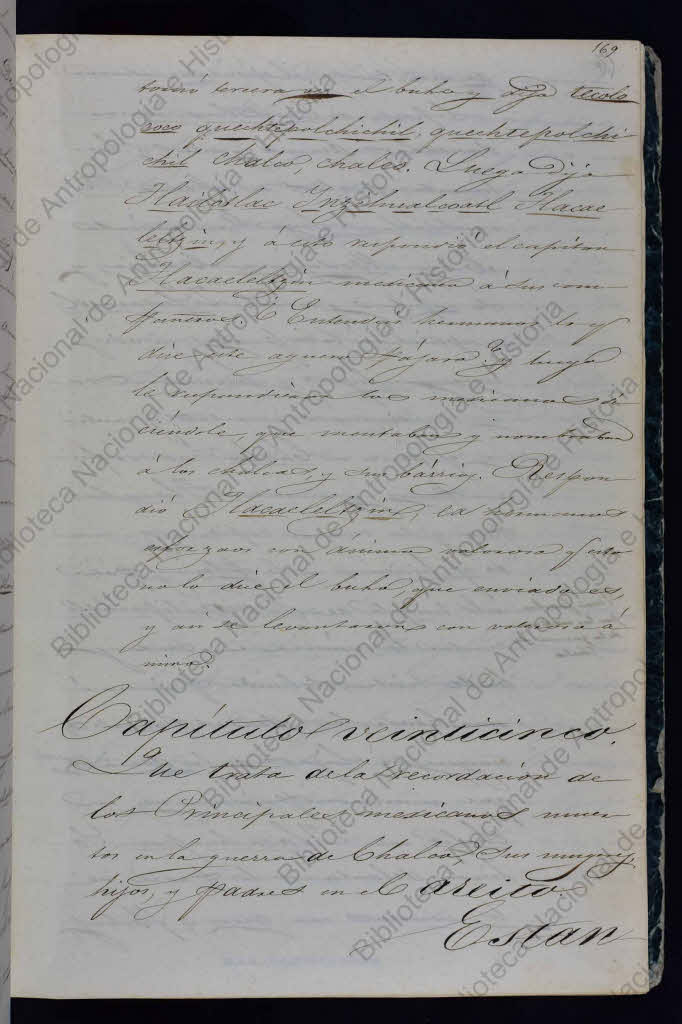 169
tornó tercera vez el buho y dijo tecolo
coco quechtepolchichil, quechtepolchi
chil Chalco, chalco. Luego dijo
Tlacaeleltzin, y á esto respondió el capitan
Tlacaeleltzin mexicano á sus com
pañeros. ¿Entendeis hermanos lo q.
dice este aguero pájaro? y luego
le respondieron los mexicanos di
ciéndole, que mentaban y nombraban
á los chalcas, y sus bárrios. Respon
dió Tlacaeleltzin, ea hermanos
esforzaos con ánimo valeroso q. esto
no lo dice el buho, que enviado es,
y asi se levantaron con valeroso á
nimo.
Capítulo veinticinco.
Que trata de la recordacion de
los Principales mexicanos muer
tos en la guerra de Chalco, sus mugeres,
hijos, y padres en el Areito
Estan
Biblioteca Nacional de Antropología e Historia